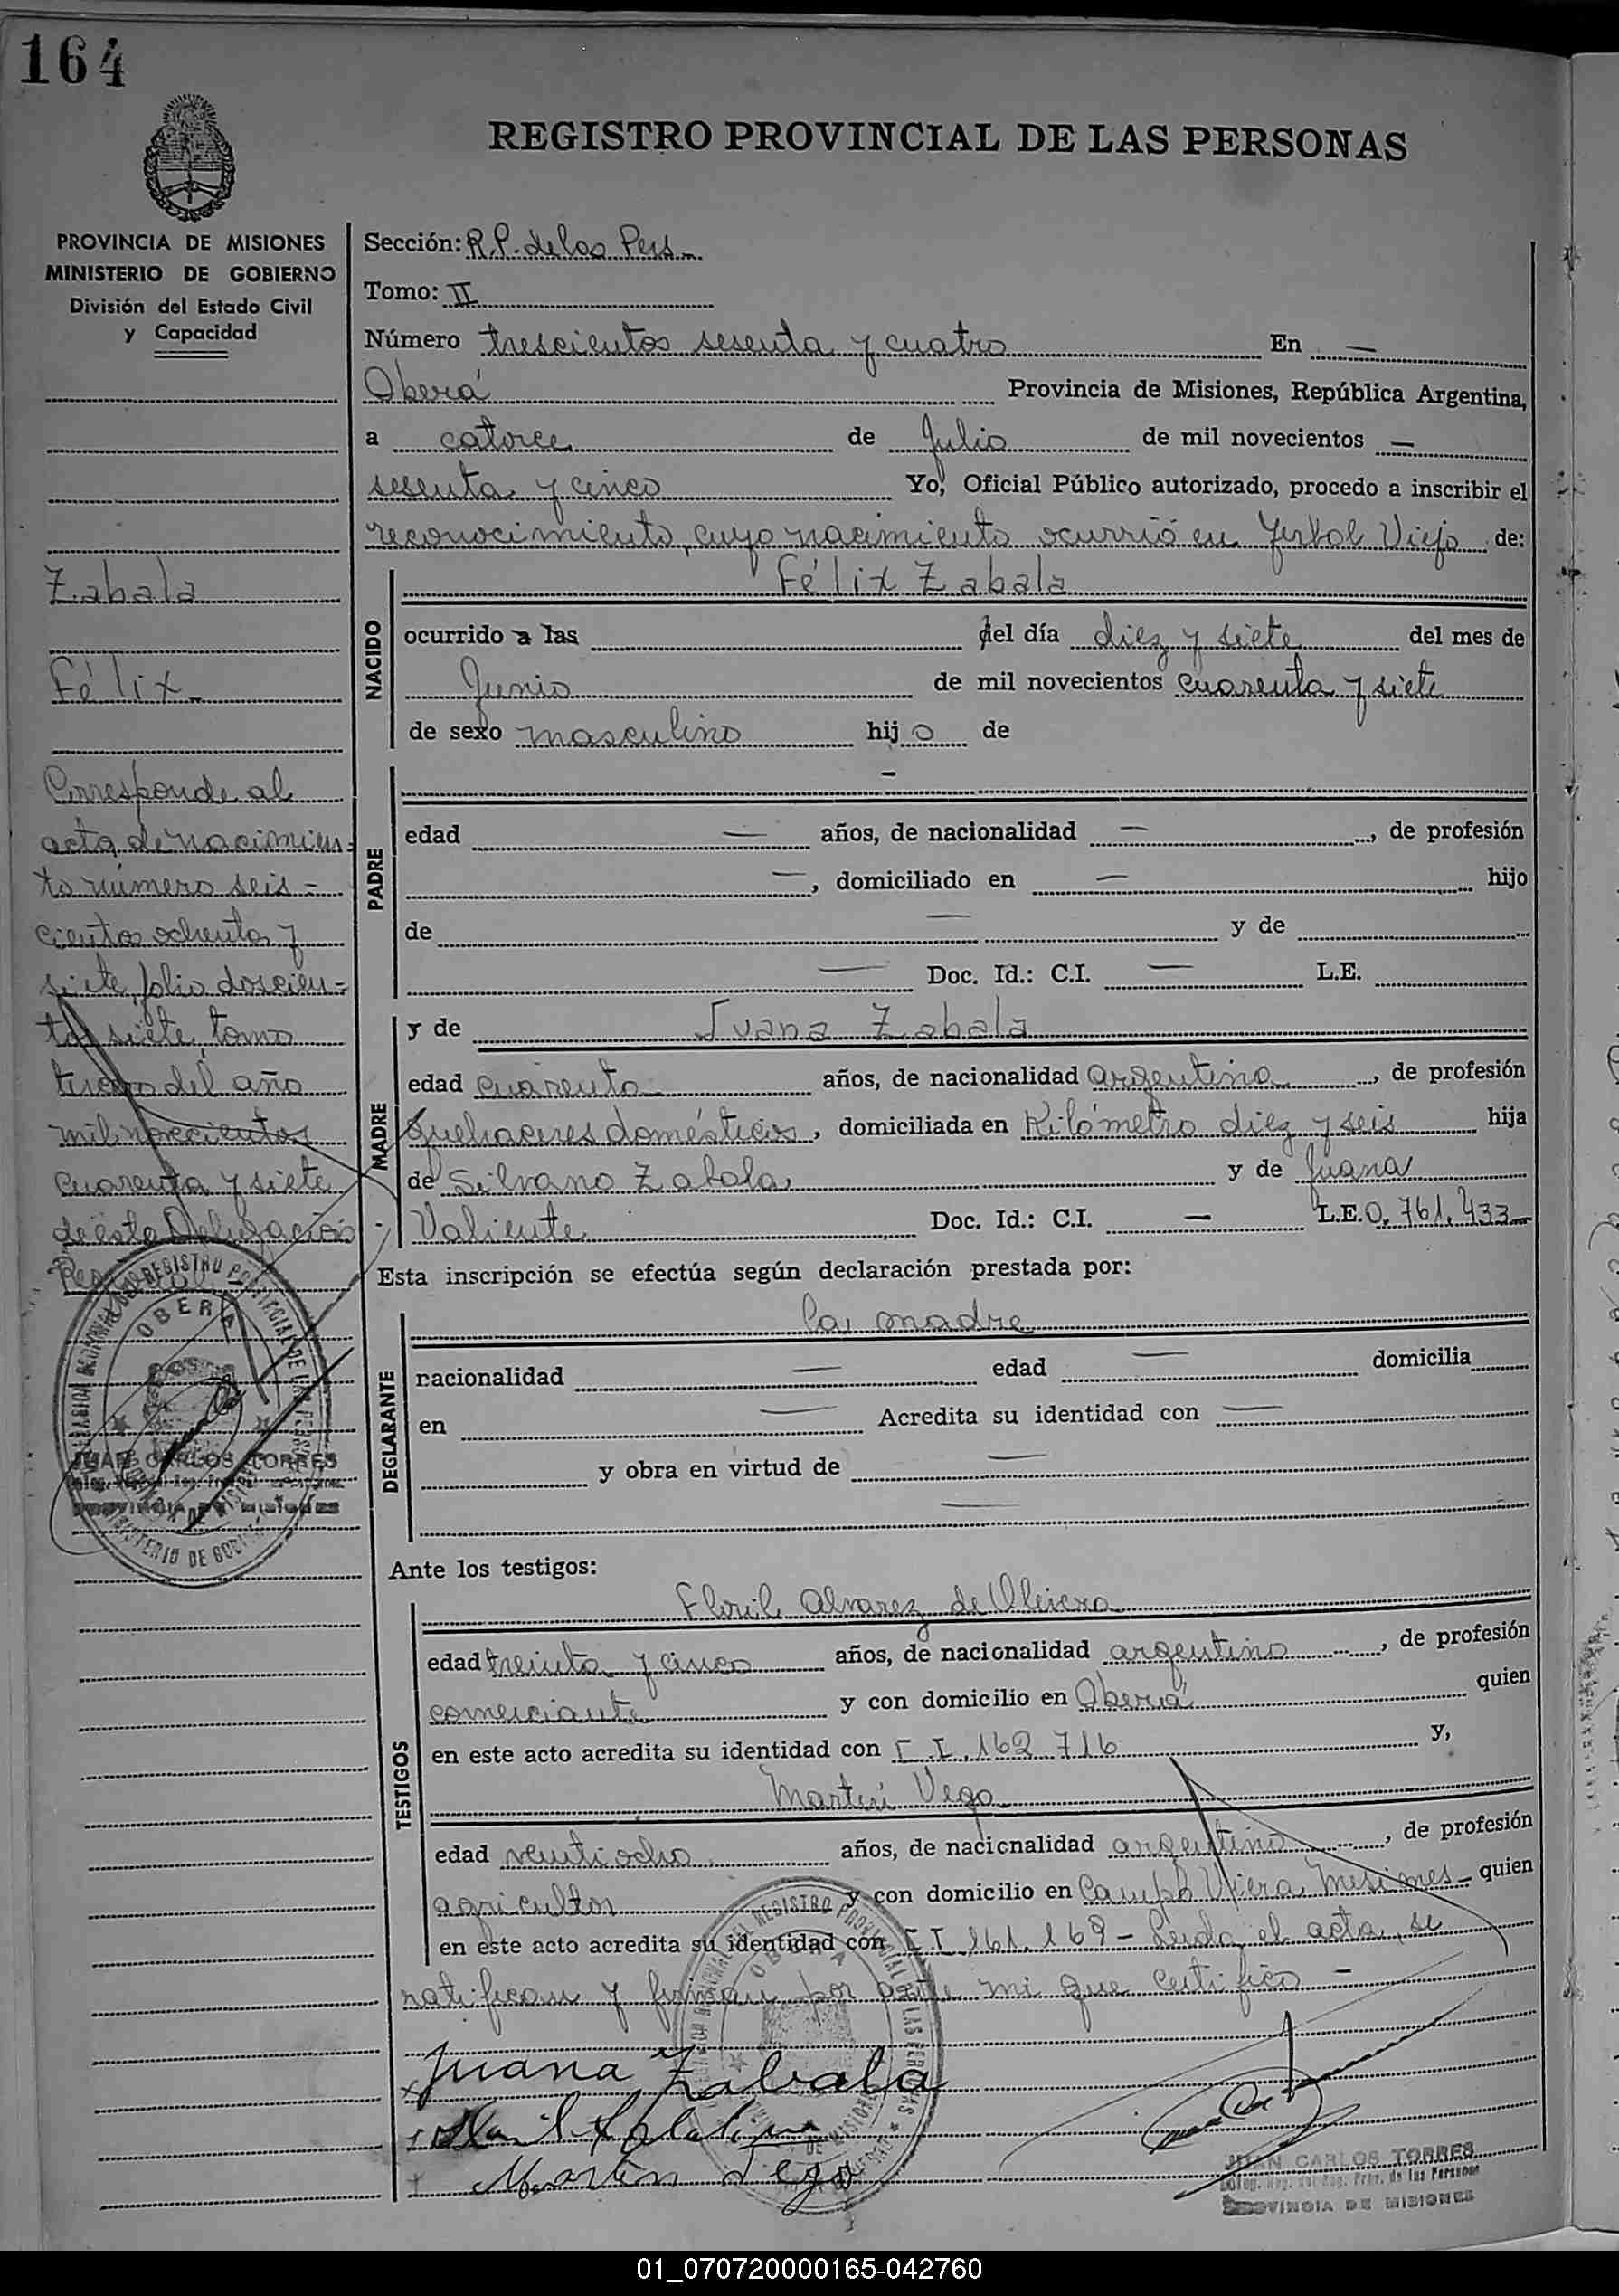 164
REGISTRO PROVINCIAL DE LAS PERSONAS
PROVINCIA DE MISIONES
MINISTERIO DE GOBIERNO
División del Estado Civil
y Capacidad
Zabala
Félix
Corresponde al
acta de nacimien-
to número seis-
cientos ochenta y
siete, folio doscien-
tos siete, tomo
tercero del año
mil novecientos
cuarenta y siete
de esta Delegación
OBERA
JUAN CARLOS TORRES
PROVINCIA DE MISIONES
Sección: R.P. de las Pers.
Tomo: II
Número trescientos sesenta y cuatro En —
Oberá Provincia de Misiones, República Argentina,
a catorce de Julio de mil novecientos —
sesenta y cinco Yo, Oficial Público autorizado, procedo a inscribir el
reconocimiento, cuyo nacimiento ocurrió en Yerbal Viejo de:
NACIDO
Félix Zabala
ocurrido a las del día diez y siete del mes de
Junio de mil novecientos cuarenta y siete
de sexo masculino hijo de
PADRE
—
edad — años, de nacionalidad —, de profesión
—, domiciliado en — hijo
de — y de
— Doc. Id.: C.I. — L.E.
MADRE
y de Juana Zabala
edad cuarenta años, de nacionalidad argentina, de profesión
Quehaceres domésticos, domiciliada en Kilómetro diez y seis hija
de Silvano Zabala y de Juana
Valiente Doc. Id.: C.I. — L.E. 0.761.433
Esta inscripción se efectúa según declaración prestada por:
DECLARANTE
la madre
nacionalidad — edad — domicilia
en — Acredita su identidad con —
y obra en virtud de —
—
Ante los testigos:
TESTIGOS
Alvarez de Olivera
edad treinta y cinco años, de nacionalidad argentino, de profesión
comerciante y con domicilio en Oberá quien
en este acto acredita su identidad con C.I. 162.716 y,
Martín Vega
edad veintiocho años, de nacionalidad argentino, de profesión
agricultor y con domicilio en Campo Viera, Misiones - quien
en este acto acredita su identidad con C.I. 161.169 - Leida el acta, se
ratifican y firman por ante mi que certifico -
Juana Zabala
Martin Vega
JUAN CARLOS TORRES
PROVINCIA DE MISIONES
01_070720000165-042760